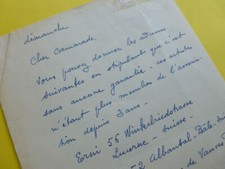 dimanche
Cher Camarade,
Vous pouvez donner les adresses
suivantes en stipulant que c'est
sans aucune garantie - ces artistes
n'étant plus membres de l'associa-
tion depuis 3 ans -
Erni 56 Winkelriedstrasse
Lucerne - Suisse -
52 Albantal - Bâle
de